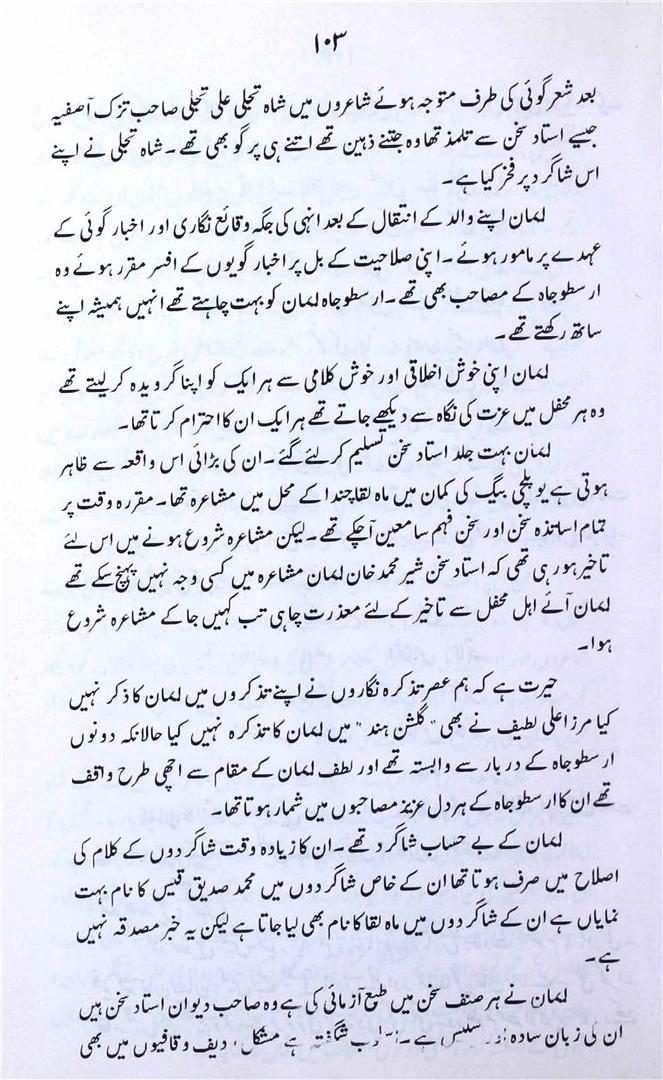 ۱۰۳
بعد شعر گوئی کی طرف متوجہ ہوئے شاعروں میں شاہ تجلی علی تجلی صاحب تزک آصفیہ
جیسے استاد سخن سے تلمذ تھا وہ جتنے ذہین تھے اتنے ہی پر گو بھی تھے۔ شاہ تجلی نے اپنے
اس شاگرد پر فخر کیا ہے۔
ایمان اپنے والد کے انتقال کے بعد انہی کی جگہ وقائع نگاری اور اخبار گوئی کے
عہدے پر مامور ہوئے۔ اپنی صلاحیت کے بل پر اخبار گویوں کے افسر مقرر ہوئے وہ
ارسطو جاہ کے مصاحب بھی تھے۔ ارسطو جاہ ایمان کو بہت چاہتے تھے انہیں ہمیشہ اپنے
ساتھ رکھتے تھے۔
ایمان اپنی خوش اخلاقی اور خوش کلامی سے ہر ایک کو اپنا گرویدہ کر لیتے تھے
وہ ہر محفل میں عزت کی نگاہ سے دیکھے جاتے تھے ہر ایک ان کا احترام کرتا تھا۔
ایمان بہت جلد استاد سخن تسلیم کر لئے گئے۔ ان کی بڑائی اس واقعہ سے ظاہر
ہوتی ہے یو پلچی بیگ کی کمان میں ماہ لقا چندا کے محل میں مشاعرہ تھا۔ مقررہ وقت پر
تمام اساتذہ سخن اور سخن فہم سامعین آچکے تھے۔ لیکن مشاعرہ شروع ہونے میں اس لئے
تاخیر ہو رہی تھی کہ استاد سخن شیر محمد خان ایمان مشاعرہ میں کسی وجہ نہیں پہنچ سکے تھے
ایمان آئے اہل محفل سے تاخیر کے لئے معذرت چاہی تب کہیں جا کے مشاعرہ شروع
ہوا۔
حیرت ہے کہ ہم عصر تذکرہ نگاروں نے اپنے تذکروں میں ایمان کا ذکر نہیں
کیا مرزا علی لطیف نے بھی "گلشن ہند" میں ایمان کا تذکرہ نہیں کیا حالانکہ دونوں
ارسطو جاہ کے دربار سے وابستہ تھے اور لطف ایمان کے مقام سے اچھی طرح واقف
تھے ان کا ارسطو جاہ کے ہر دل عزیز مصاحبوں میں شمار ہوتا تھا۔
ایمان کے بے حساب شاگرد تھے۔ ان کا زیادہ وقت شاگردوں کے کلام کی
اصلاح میں صرف ہوتا تھا ان کے خاص شاگردوں میں محمد صدیق قیس کا نام بہت
نمایاں ہے ان کے شاگردوں میں ماہ لقا کا نام بھی لیا جاتا ہے لیکن یہ خبر مصدقہ نہیں
ہے۔
ایمان نے ہر صنف سخن میں طبع آزمائی کی ہے وہ صاحب دیوان استاد سخن ہیں
ان کی زبان سادہ اور سلیس ہے۔ اسلوب شگفتہ ہے مشکل ردیف و قافیوں میں بھی